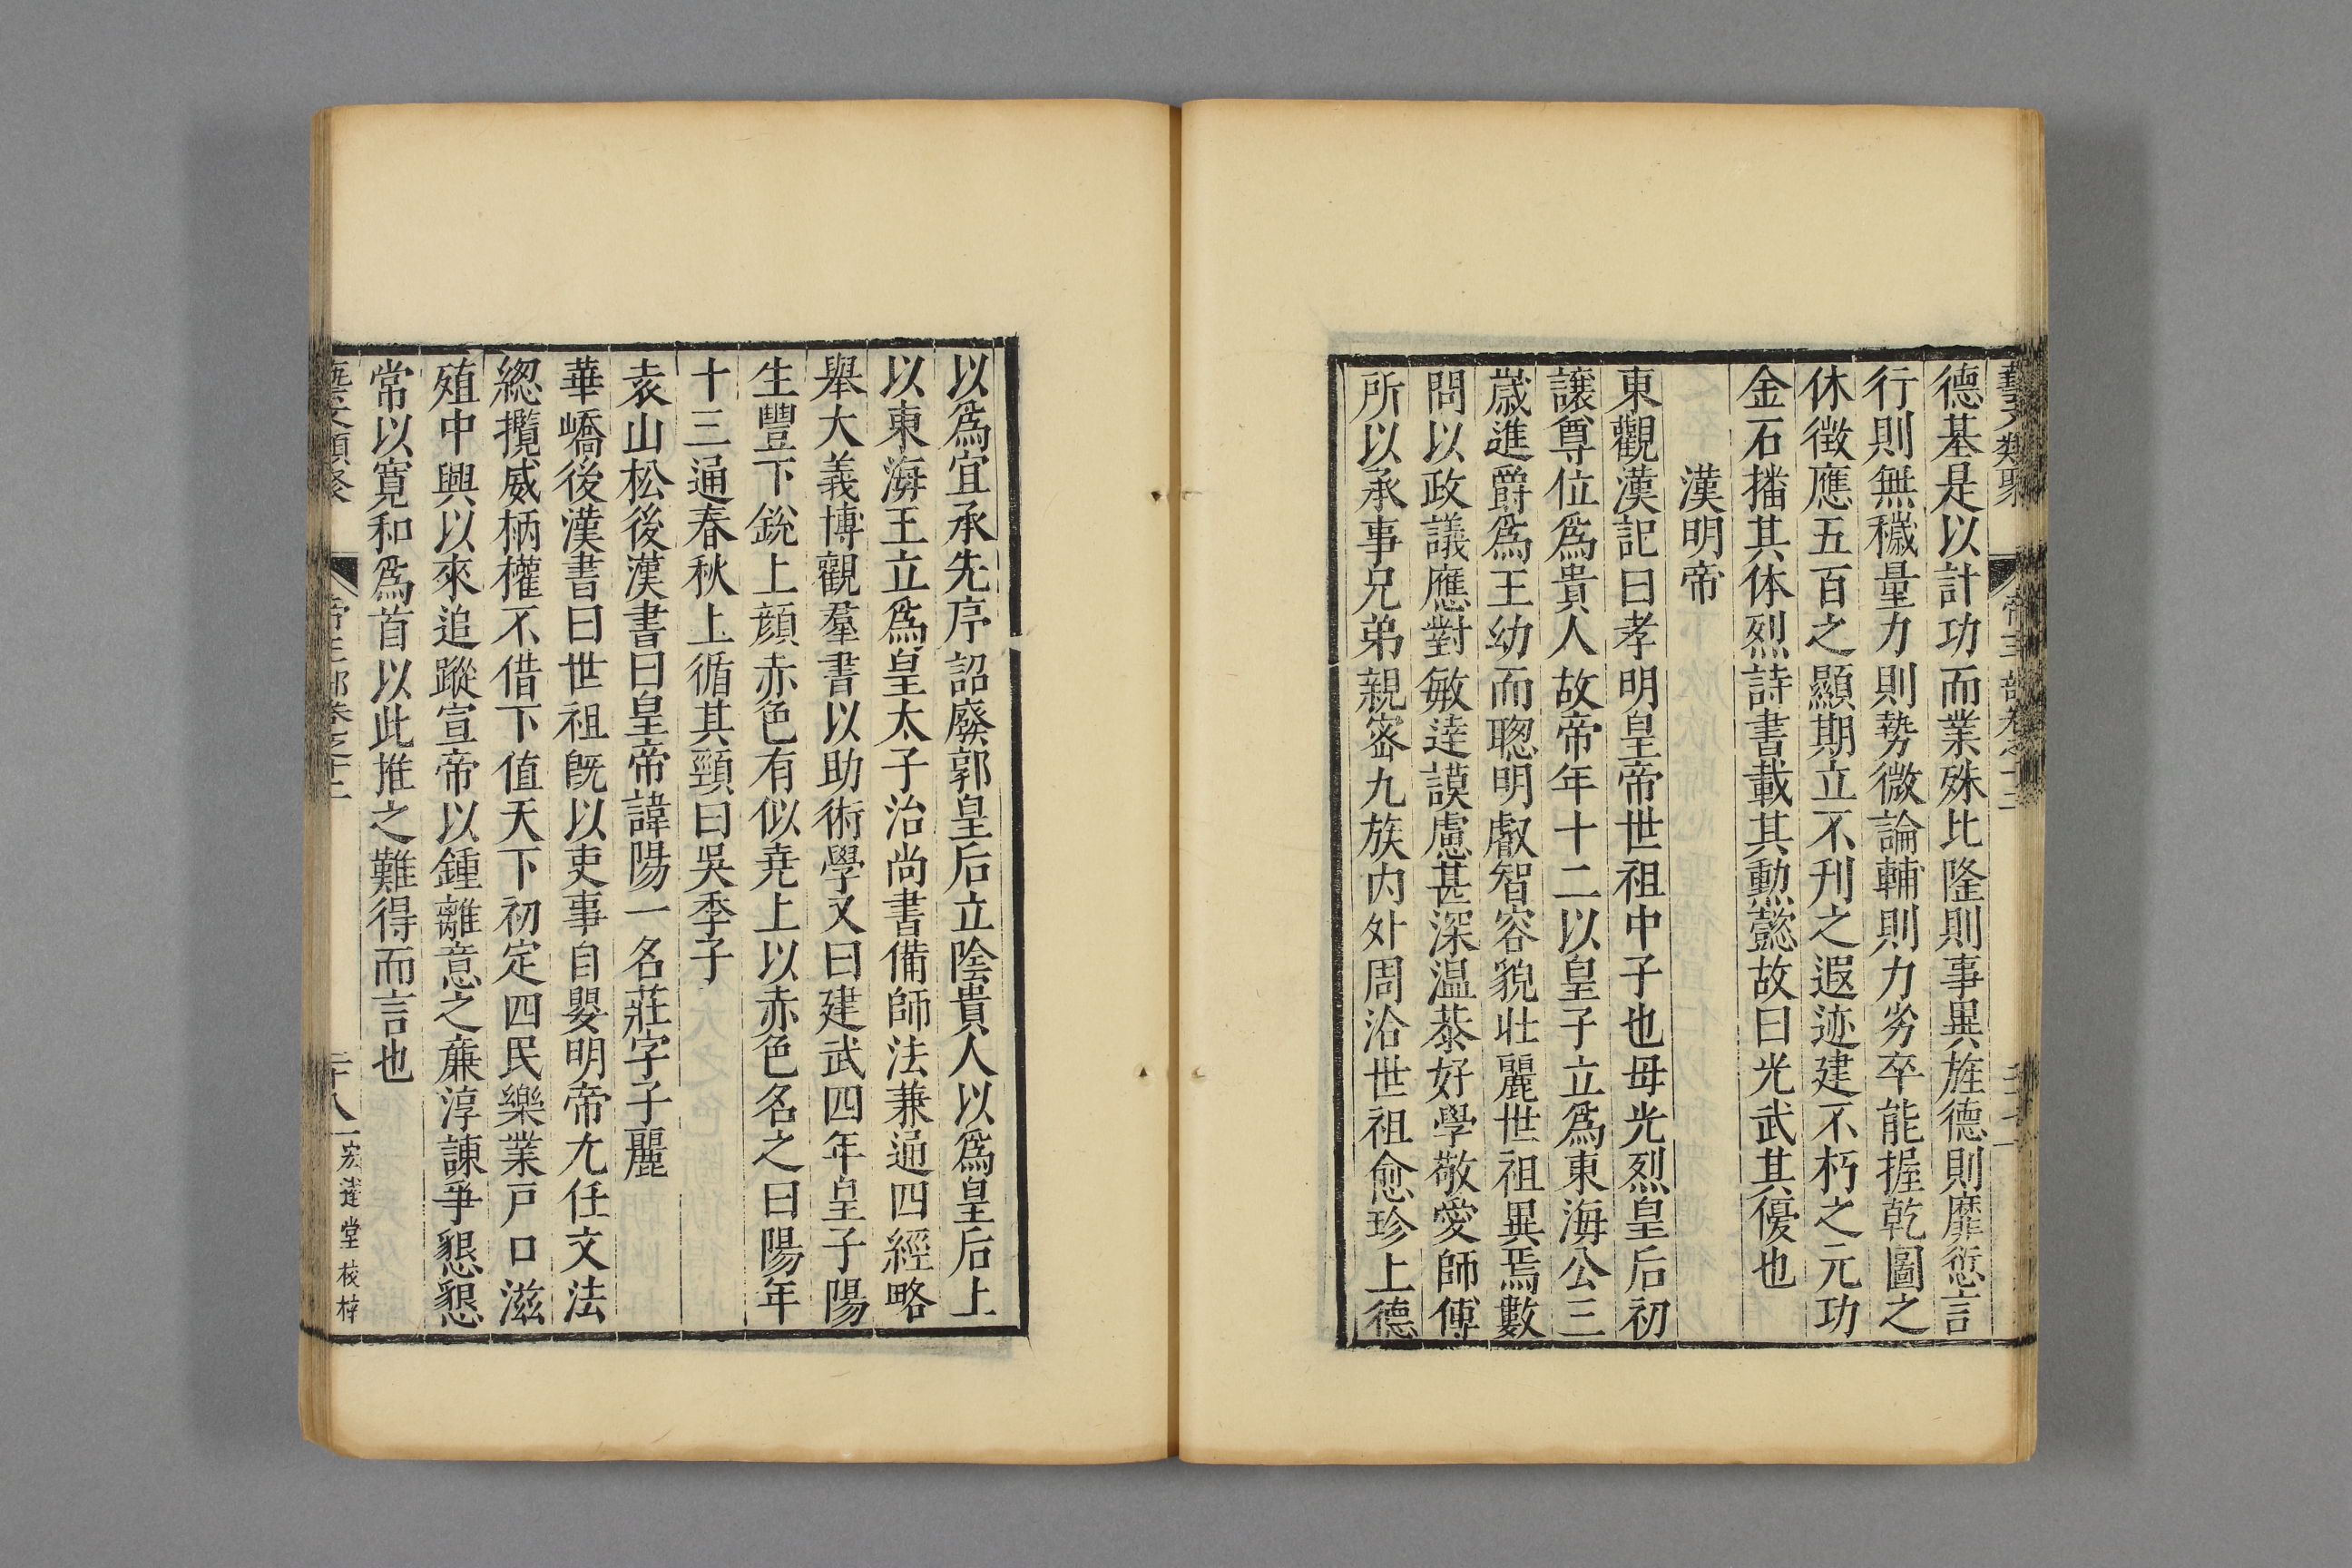 藝文類聚 帝王部卷之十二
德基是以計功而業殊比隆則事異旌德則靡愆言
行則無穢量力則勢微論輔則力劣卒能握乾圖之
休徵應五百之顯期立不刋之遐迹建不朽之元功
金石播其休烈詩書載其勲懿故曰光武其優也
漢明帝
東觀漢記曰孝明皇帝世祖中子也母光烈皇后初
讓尊位爲貴人故帝年十二以皇子立爲東海公三
歲進爵爲王幼而聰明叡智容貌壯麗世祖異焉數
問以政議應對敏達謨慮甚深温恭好學敬愛師傅
所以承事兄弟親宻九族内外周洽世祖愈珍上德
以爲宜承先序詔廢郭皇后立陰貴人以爲皇后上
以東海王立爲皇太子治尚書備師法兼通四經略
舉大義博觀羣書以助術學又曰建武四年皇子陽
生豐下銳上顔赤色有似尭上以赤色名之曰陽年
十三通春秋上循其頸曰吳季子
袁山松後漢書曰皇帝諱陽一名莊字子麗
華嶠後漢書曰世祖既以吏事自嬰明帝尢任文法
緫攬威柄權不借下值天下初定四民樂業戸口滋
殖中興以來追蹤宣帝以鍾離意之亷淳諫爭懇懇
常以寛和爲首以此推之難得而言也
藝文類聚 帝王部卷之十二 二十八 宏達堂校梓